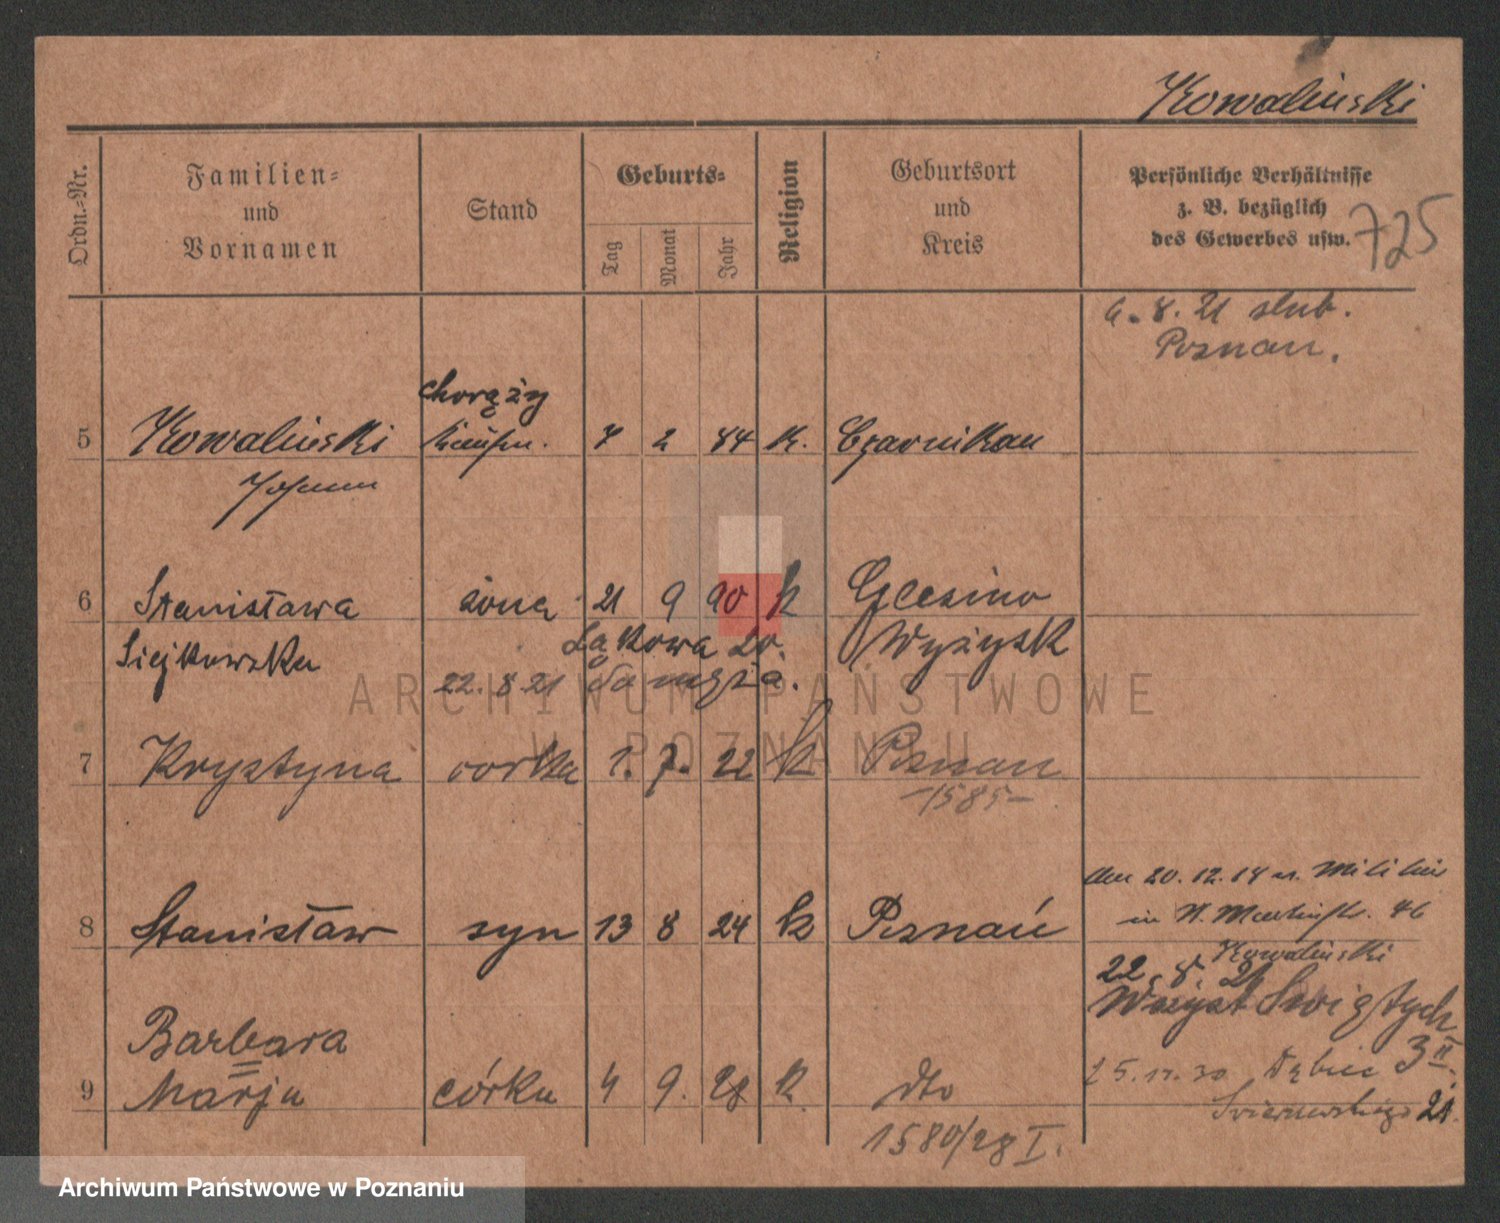 Kowalinski
Ordn.-Nr.
Familien-
und
Vornamen
Stand
Geburts-
Tag
Monat
Jahr
Religion
Geburtsort
und
Kreis
Persönliche Verhältnisse
z. B. bezüglich
des Gewerbes usw.
725
6. 8. 21 slub.
Poznan.
chorąży
5 Kowalinski Kaufm. 7 2 84 K. Czarnikau
Johann
6 Stanisława żona 21 9 90 k Glesino
Łąkowa 20. Wyżysk
22. 8 21
7 Krystyna corka 1. 7. 22 k Poznan
-1585-
den 20. 12. 18 v. Militär
8 Stanisław syn 13 8 24 k Poznań in St. Martinstr. 46
Kowalinski
22. 8. 21
Wszyst Swiętych
Barbara
9 Marja córka 4 9. 28 k. dto
25. 11. 30 Dębiec 3 II.
21.
1580/28 I.
ARCHIWUM PAŃSTWOWE
W POZNANIU
Archiwum Państwowe w Poznaniu